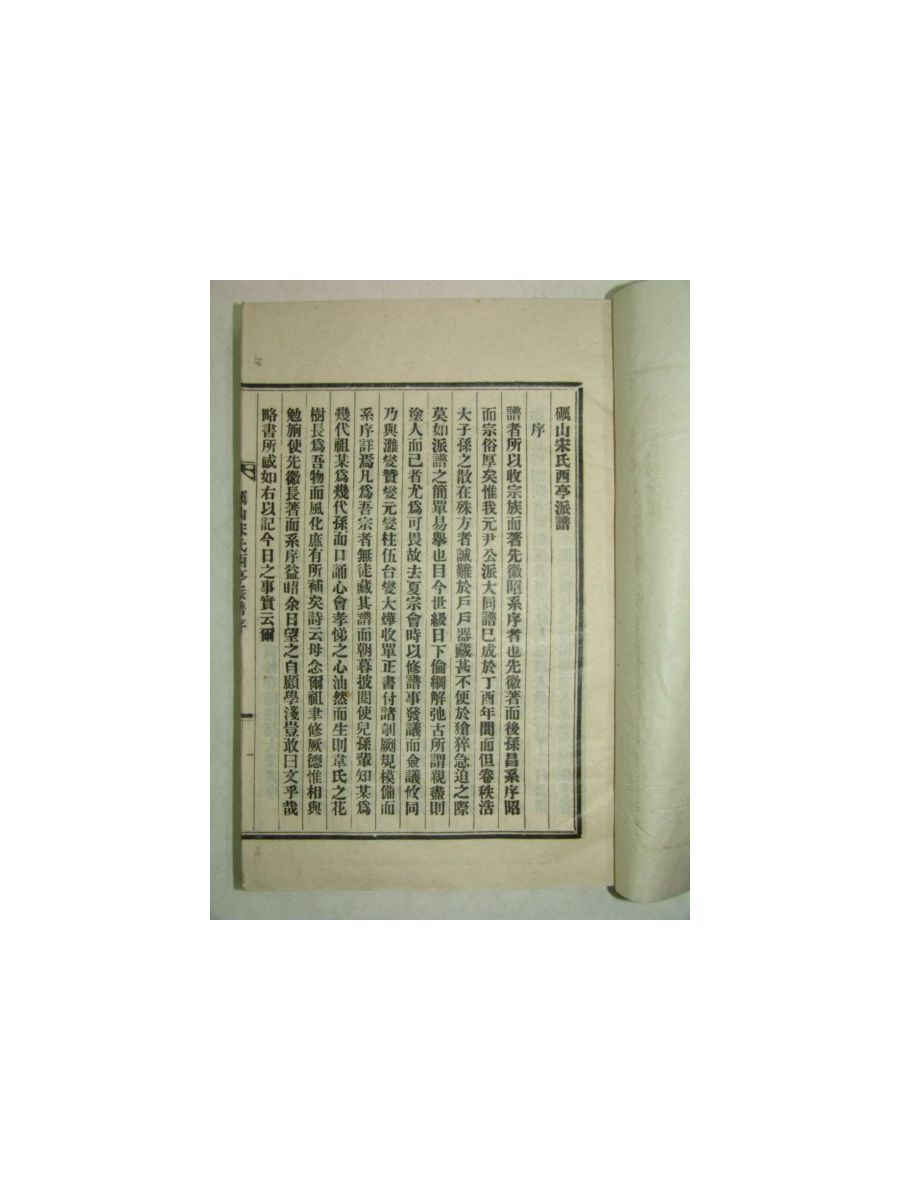 礪山宋氏西亭派譜
序
譜者所以收宗族而著先徽昭系序者也先徽著而後孫昌系序昭
而宗俗厚矣惟我元尹公派大同譜已成於丁酉年間而但卷秩浩
大子孫之散在殊方者誠難於戶戶器藏甚不便於猝急迫之際
莫如派譜之簡單易擧也目今世級日下倫綱解弛古所謂親盡則
塗人而已者尤爲可畏故去夏宗會時以修譜事發議而僉議攸同
乃與灘燮贊燮元燮柱伍台燮大燁收單正書付諸剞劂規模備而
系序詳焉凡爲吾宗者無徒藏其譜而朝暮披閱使兒孫輩知某爲
幾代祖某爲幾代孫而口誦心會孝悌之心油然而生則韋氏之花
樹長爲吾物而風化庶有所補矣詩云毋念爾祖聿修厥德惟相與
勉旃使先徽長著而系序益昭余日望之自顧學淺豈敢曰文乎哉
略書所感如右以記今日之事實云爾
礪山宋氏西亭派譜序
一